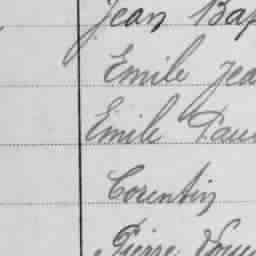 Jean Bap
Emile Jea
Emile Pau
Corentin
Pierre Loui